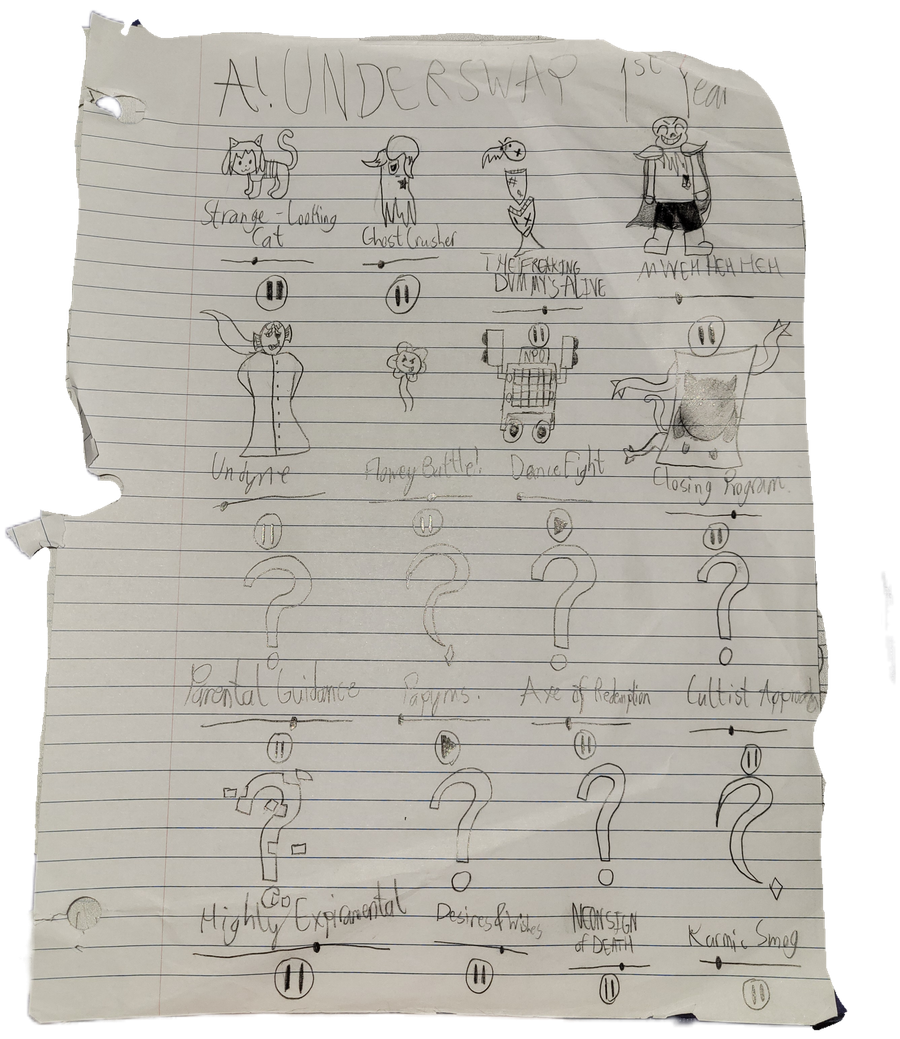 A! UNDERSWAP 1st Year
Strange-Looking
Cat
Ghost Crusher
THE FREAKING
DUMMY'S ALIVE
MWEH HEH HEH
NPO
Undyne
Flowey Battle!
Dance Fight
Closing Program.
Parental Guidance
Papyrus.
Axe of Redemption
Cultist Approach
Highly Expiramental
Desires & Wishes
NEON SIGN
of DEATH
Karmic Smog